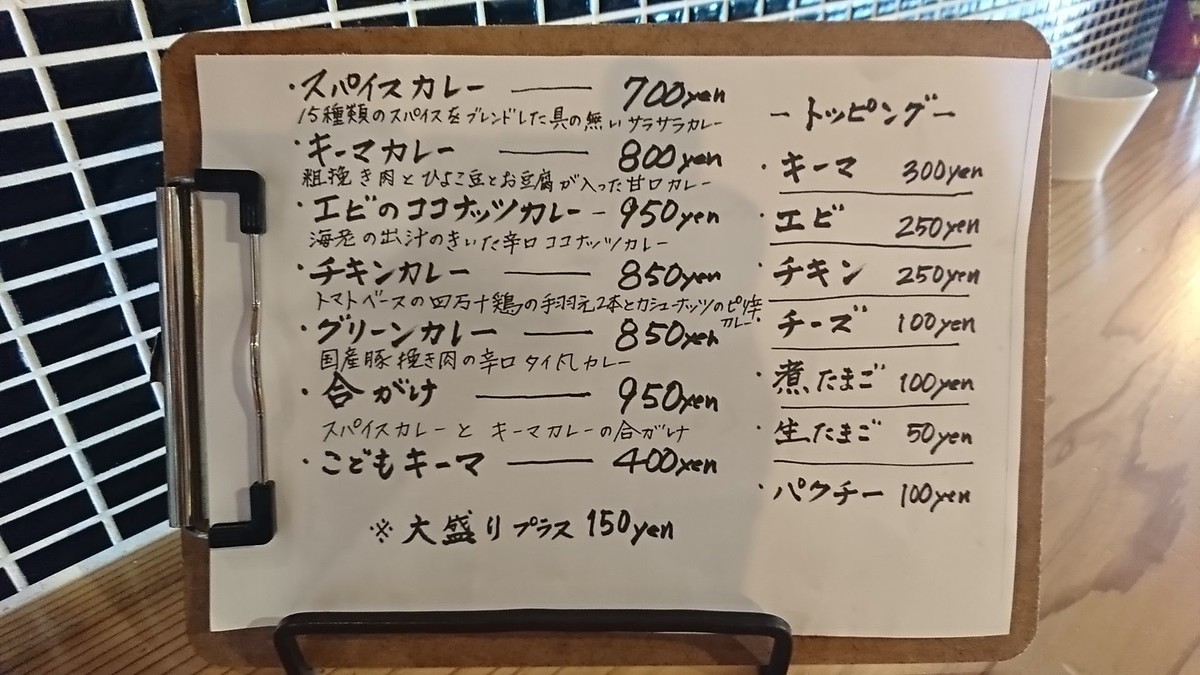 ・スパイスカレー ― 700yen
15種類のスパイスをブレンドした具の無いサラサラカレー
・キーマカレー ― 800yen
粗挽き肉とひよこ豆とお豆腐が入った甘口カレー
・エビのココナッツカレー ― 950yen
海老の出汁のきいた辛口ココナッツカレー
・チキンカレー ― 850yen
トマトベースの四万十鶏の手羽元2本とカシューナッツのピリ辛
カレー
・グリーンカレー ― 850yen
国産豚挽き肉の辛口タイ風カレー
・合がけ ― 950yen
スパイスカレーと キーマカレーの合がけ
・こどもキーマ ― 400yen
※大盛りプラス 150yen
ートッピングー
・キーマ 300yen
・エビ 250yen
・チキン 250yen
・チーズ 100yen
・煮たまご 100yen
・生たまご 50yen
・パクチー 100yen